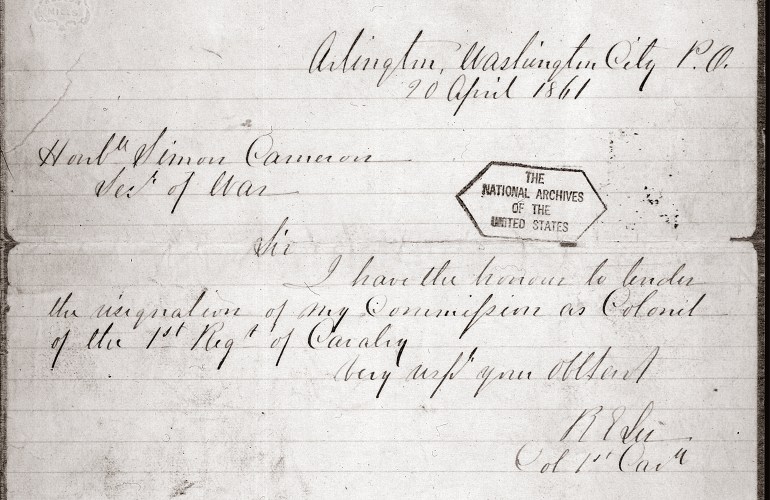 Arlington, Washington City P.O.
20 April 1861
Honble Simon Cameron
Secy of War
THE
NATIONAL ARCHIVES
OF THE
UNITED STATES
Sir
I have the honour to tender
the resignation of my Commission as Colonel
of the 1st Regt of Cavalry
Very respy your Obt Servt
R E Lee
Col 1st Cavy